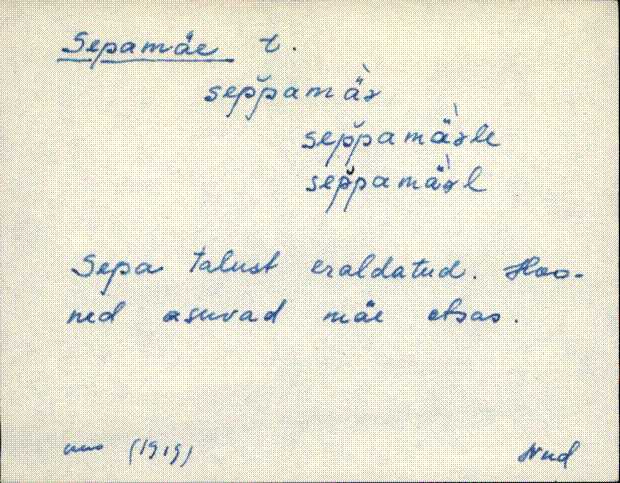 Sepamäe t.
sep̆pamäɛ̀
sep̆pamäɛ̀le
sep̆pamäɛ̀l
Sepa talust eraldatud. Hoo-
ned asuvad mäe otsas.
uus (1919)
Nud